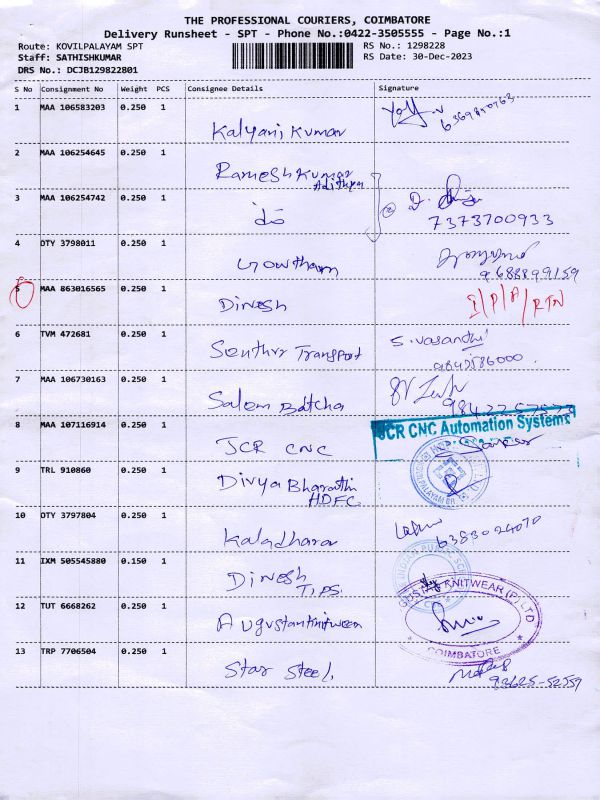 THE PROFESSIONAL COURIERS, COIMBATORE
Delivery Runsheet - SPT - Phone No.:0422-3505555 - Page No.:1
Route: KOVILPALAYAM SPT
RS No.: 1298228
Staff: SATHISHKUMAR
RS Date: 30-Dec-2023
DRS No.: DCJB129822801
S No Consignment No Weight PCS Consignee Details Signature
1 MAA 106583203 0.250 1 Kalyani Kumar
2 MAA 106254645 0.250 1 Ramesh Kumar
Adithya
3 MAA 106254742 0.250 1 do
2
7373700933
4 DTY 3798011 0.250 1 Gowtham
9688899159
5 MAA 863016565 0.250 1 Dinesh
6 TVM 472681 0.250 1 Senthur Transport S. Vasandhi
9842586000
7 MAA 106730163 0.250 1 Salem Batcha
8 MAA 107116914 0.250 1 JCR CNC
JCR CNC Automation Systems
9 TRL 910860 0.250 1 Divya Bharathi
HDFC
10 DTY 3797804 0.250 1 Kaladharan
6383024070
11 IXM 505545880 0.150 1 Dinesh
TIPS
12 TUT 6668262 0.250 1 Augustanknitween
KNITWEAR (P) LTD
COIMBATORE
13 TRP 7706504 0.250 1 Star Steel,
93625-52559